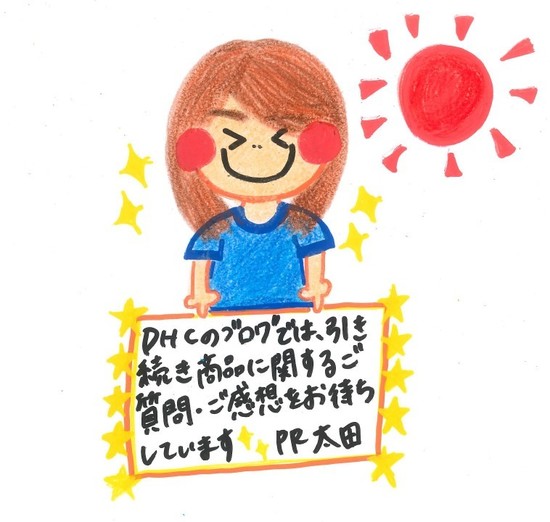 DHCのブログでは、引き
続き商品に関するご
質問・ご感想をお待ち
しています PR太田